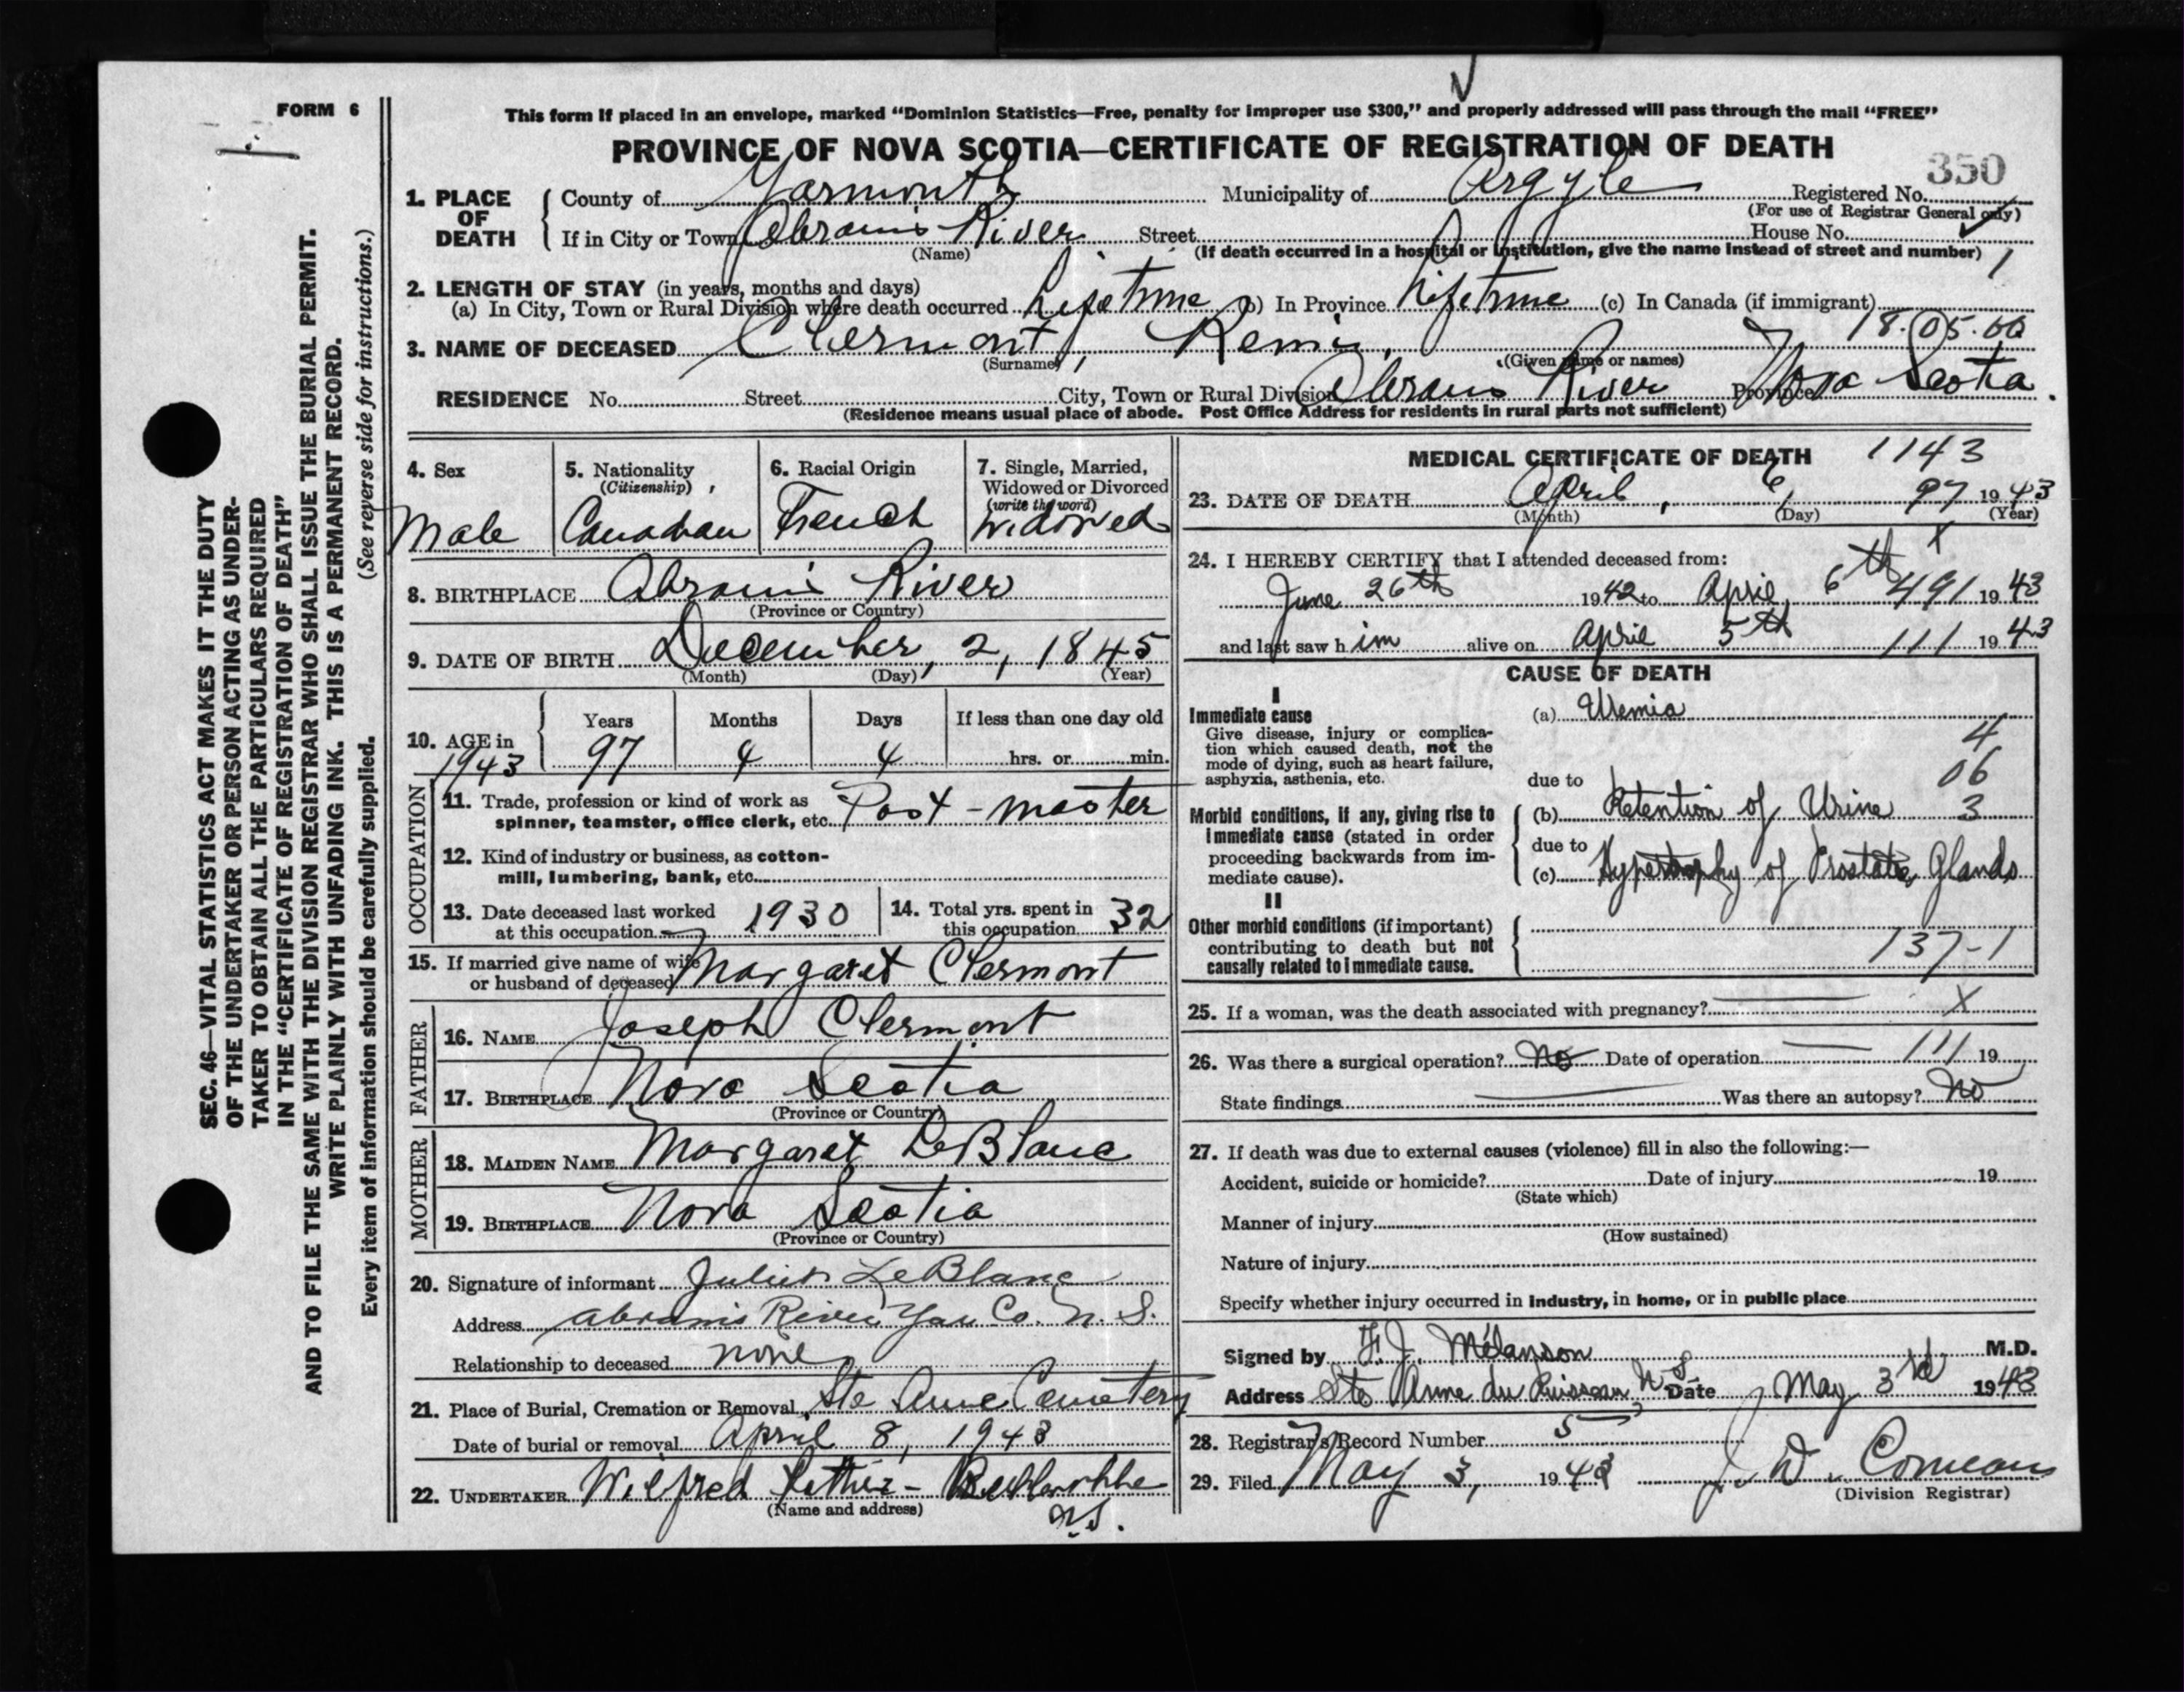 FORM 6
This form if placed in an envelope, marked “Dominion Statistics—Free, penalty for improper use $300,” and properly addressed will pass through the mail “FREE”
PROVINCE OF NOVA SCOTIA—CERTIFICATE OF REGISTRATION OF DEATH
350
1. PLACE OF DEATH County of Yarmouth Municipality of Argyle Registered No.
(For use of Registrar General only)
If in City or Town Abrams River Street House No.
(Name) (If death occurred in a hospital or institution, give the name instead of street and number) 1
2. LENGTH OF STAY (in years, months and days)
(a) In City, Town or Rural Division where death occurred Lifetime (b) In Province Lifetime (c) In Canada (if immigrant)
18.05.00
3. NAME OF DECEASED Clermont, Remi,
(Surname) (Given name or names)
RESIDENCE No. Street City, Town or Rural Division Abrams River Province Nova Scotia.
(Residence means usual place of abode. Post Office Address for residents in rural parts not sufficient)
4. Sex Male
5. Nationality (Citizenship) Canadian
6. Racial Origin French
7. Single, Married, Widowed or Divorced (write the word) Widowed
8. BIRTHPLACE Abram's River
(Province or Country)
9. DATE OF BIRTH December, 2, 1845
(Month) (Day) (Year)
10. AGE in 1943 Years 97 Months 4 Days 4 If less than one day old
hrs. or min.
OCCUPATION
11. Trade, profession or kind of work as spinner, teamster, office clerk, etc. Post-master
12. Kind of industry or business, as cotton-mill, lumbering, bank, etc.
13. Date deceased last worked at this occupation 1930
14. Total yrs. spent in this occupation 32
15. If married give name of wife or husband of deceased Margaret Clermont
FATHER
16. NAME Joseph Clermont
17. BIRTHPLACE Nova Scotia
(Province or Country)
MOTHER
18. MAIDEN NAME Margaret LeBlanc
19. BIRTHPLACE Nova Scotia
(Province or Country)
20. Signature of informant LeBlanc
Address Abram's River Yar Co. N. S.
Relationship to deceased none
21. Place of Burial, Cremation or Removal Ste Anne Cemetery
Date of burial or removal April 8, 1943
22. UNDERTAKER Wilfred
(Name and address)
N.S.
MEDICAL CERTIFICATE OF DEATH 1143
23. DATE OF DEATH April, 6, 97 1943
(Month) (Day) (Year)
24. I HEREBY CERTIFY that I attended deceased from: X
June 26th 1942 to April, 6th 491 1943
and last saw him alive on April 5th 111 1943
CAUSE OF DEATH
I
Immediate cause (a) Uremia
Give disease, injury or complication which caused death, not the mode of dying, such as heart failure, asphyxia, asthenia, etc.
4
06
3
due to
Morbid conditions, if any, giving rise to immediate cause (stated in order proceeding backwards from immediate cause).
(b) Retention of Urine
due to
(c) Hypertrophy of Prostate Glands
II
Other morbid conditions (if important) contributing to death but not causally related to immediate cause.
137-1
25. If a woman, was the death associated with pregnancy? X
26. Was there a surgical operation? No Date of operation 111 19
State findings Was there an autopsy? No
27. If death was due to external causes (violence) fill in also the following:—
Accident, suicide or homicide? Date of injury 19
(State which)
Manner of injury
(How sustained)
Nature of injury
Specify whether injury occurred in industry, in home, or in public place
Signed by F. J. Mélanson M.D.
Address Ste Anne du Ruisseau N S Date May 3rd 1943
28. Registrar's Record Number 5
29. Filed May 3, 1943 J. W. Comeau
(Division Registrar)
SEC. 46—VITAL STATISTICS ACT MAKES IT THE DUTY
OF THE UNDERTAKER OR PERSON ACTING AS UNDER-
TAKER TO OBTAIN ALL THE PARTICULARS REQUIRED
IN THE “CERTIFICATE OF REGISTRATION OF DEATH”
AND TO FILE THE SAME WITH THE DIVISION REGISTRAR WHO SHALL ISSUE THE BURIAL PERMIT.
WRITE PLAINLY WITH UNFADING INK. THIS IS A PERMANENT RECORD.
(See reverse side for instructions.)
Every item of information should be carefully supplied.